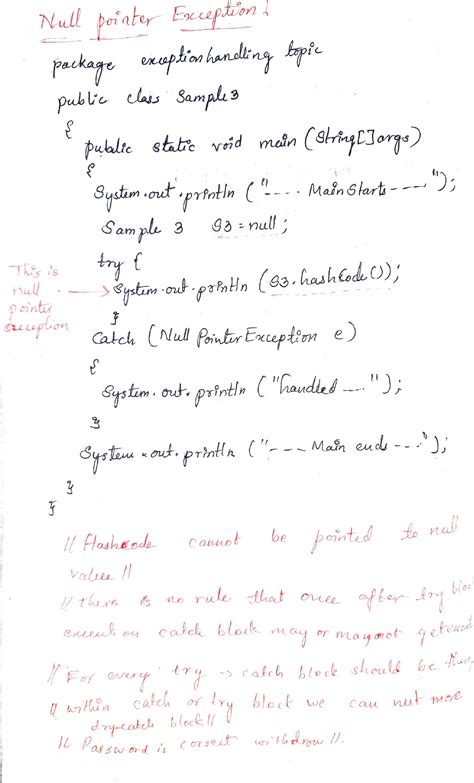 Null pointer Exception!
package exceptionhandling topic
public class Sample3
{
public static void main (String[]args)
{
System.out.println ("---- Main Starts ----");
Sample 3 S3 = null;
try {
This is null pointer exception
System.out.println (S3.hashCode());
}
Catch (Null PointerException e)
{
System.out.println ("handled ---");
}
System.out.println ("--- Main ends ---");
}
}
// Hashcode cannot be pointed to null
value //
// there is no rule that once after try bloc
execution catch block may or maynot get
// For every try → catch block should be there
// within catch or try block we can nest more
try-catch block//
// Password is correct withdraw //.